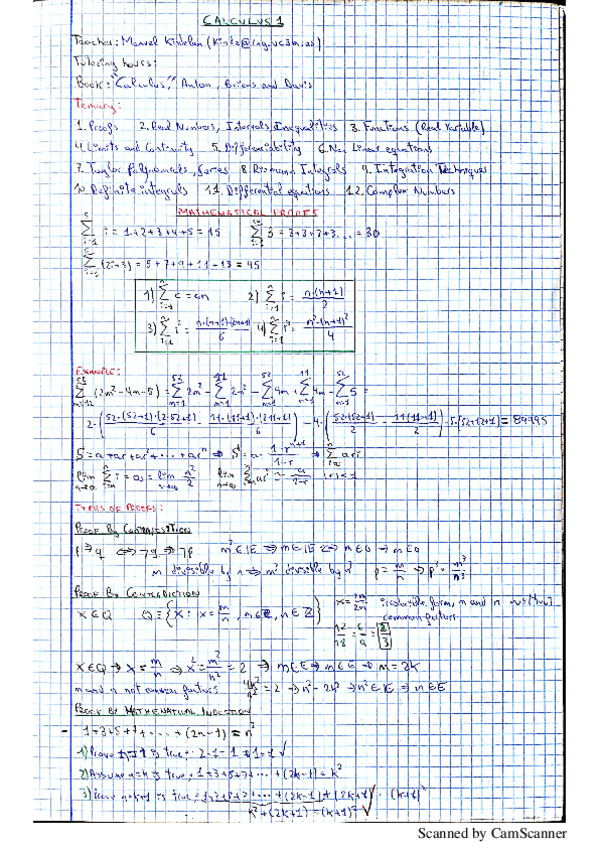 CALCULUS 1
Teacher: Manuel Kindelan (kinde@ing.uc3m.es)
Tutoring hours:
Book: "Calculus", Anton, Bivens and Davis
Temary:
1. Proofs 2. Real Numbers, Intervals, Inequalities 3. Functions (Real Variable)
4. Limits and Continuity 5. Differentiability 6. Non Linear equations
7. Taylor Polynomials, Series 8. Riemann Integrals 9. Integration Techniques
10. Definite integrals 11. Differential equations 12. Complex Numbers
MATHEMATICAL PROOFS
∑ i = 1+2+3+4+5 = 15 ∑ 3 = 3+3+3+3... = 30
= 5+7+9+11+13 = 45
1) ∑ c = cn 2) ∑ i = n·(n+1)/2
3) ∑ i² = 4) ∑ i³ = n²·(n+1)²/4
EXAMPLE:
∑ (2m²-4m-5) = ∑ 2m² - ∑ 2m² - ∑ 4m + ∑ 4m - ∑ 5 =
S = a+ar+ar²+...+arⁿ ⇒ S = a· (1-rⁿ⁺¹)/(1-r) ⇒ ∑ arⁱ
lim ∑ i = ∞ = lim n²/2 lim ∑ arⁱ = |r|<1
TYPES OF PROOFS:
PROOF BY CONTRAPOSITION
m divisible by n ⇔ m² divisible by n² p = m/n ⇒
PROOF BY CONTRADICTION
x∈Q Q = {x: x = m/n, m∈Z, n∈Z} x = 2m/2n irreducible form, m and n
common factors
12/18 = 6/9 = 2/3
x∈Q ⇒ x = m/n ⇒ x² = m²/n² = 2 ⇒ m∈E ⇒ m∈E ⇒ m = 2k
m and n not common factors 4k²/n² = 2 ⇒ n² = 2k² ⇒ n²∈E ⇒ n∈E
PROOF BY MATHEMATICAL INDUCTION
- 1+3+5+7+...+(2n-1) = n²
1) Prove n=1 is true: 2-1 = 1 ⇒ 1 = 1 ✓
2) Assume n=k is true: 1+3+5+7+...+(2k-1) = k²
3) Prove n=k+1 is true: 1+3+5+7+...+(2k-1)+(2k+1) = (k+1)²
k²+(2k+1) = (k+1)² ✓
Scanned by CamScanner